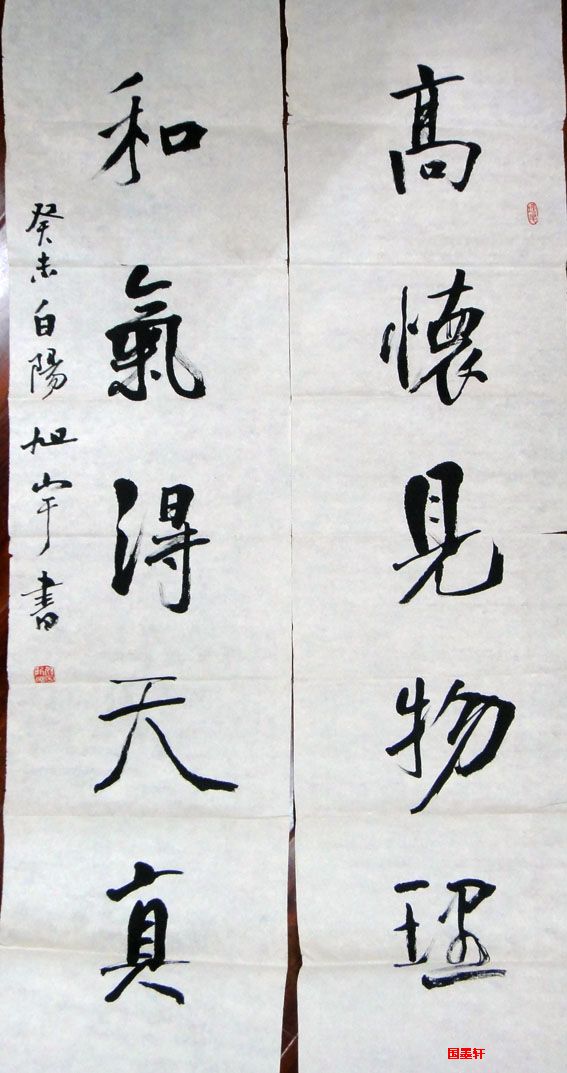 高懷見物理
和氣得天真
癸未白陽旭宇書
国墨轩